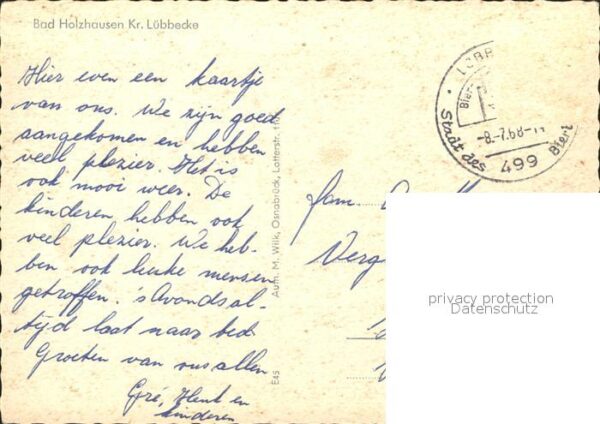 Bad Holzhausen Kr. Lübbecke
Hier even een kaartje
van ons. We zijn goed
aangekomen en hebben
veel plezier. Het is
ook mooi weer. De
kinderen hebben ook
veel plezier. We heb-
ben ook leuke mensen
getroffen. 's Avonds al-
tijd laat naar bed.
Groeten van ons allen
Gré, Henk en
kinderen
Aufn. M. Wilk, Osnabrück, Lotterstr.
E45
LÜBB
Bier
-8.-7.68-
Stadt des
499
Bier
fam.
Verg
privacy protection
Datenschutz